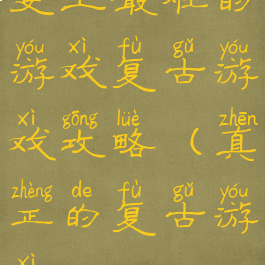 史上最难的
yóu xì fù gǔ yóu
游戏复古游
xì gōng lüè zhēn
戏攻略（真
zhèng de fù gǔ yóu
正的复古游
xì